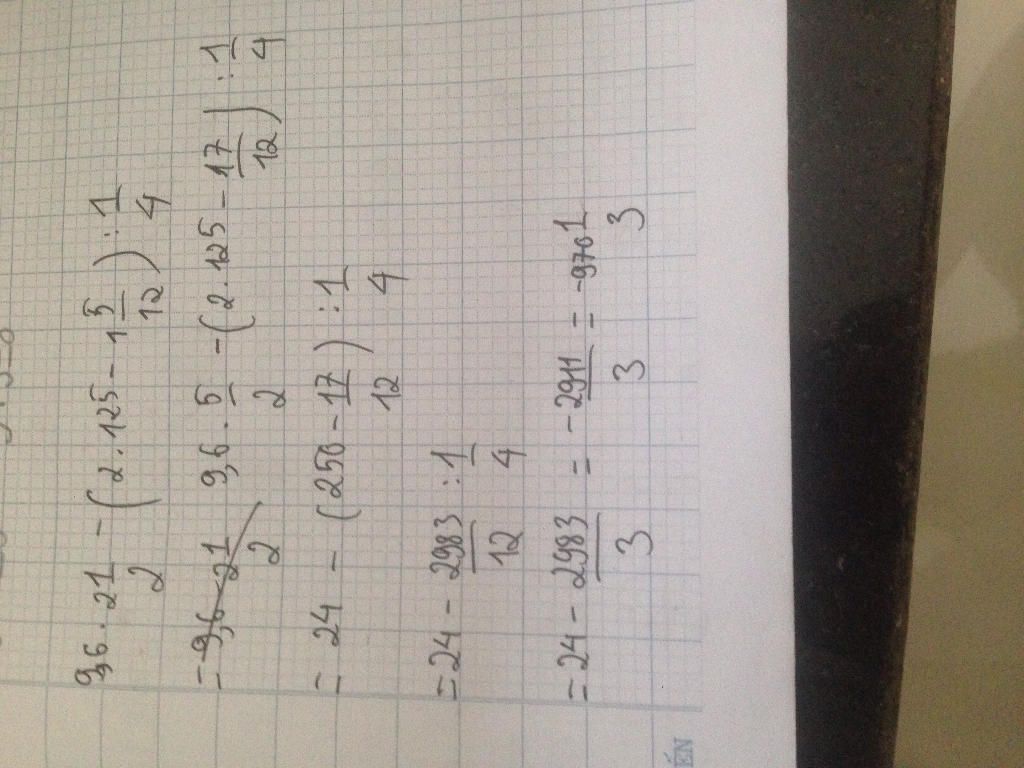 9,6 . 2 1/2 - ( 2 . 125 - 1 5/12 ) : 1/4
= 9,6 - 2 1/2 9,6 . 5/2 - ( 2 . 125 - 17/12 ) : 1/4
= 24 - ( 250 - 17/12 ) : 1/4
= 24 - 2983/12 : 1/4
= 24 - 2983/3 = - 2911/3 = - 970 1/3
ÉN